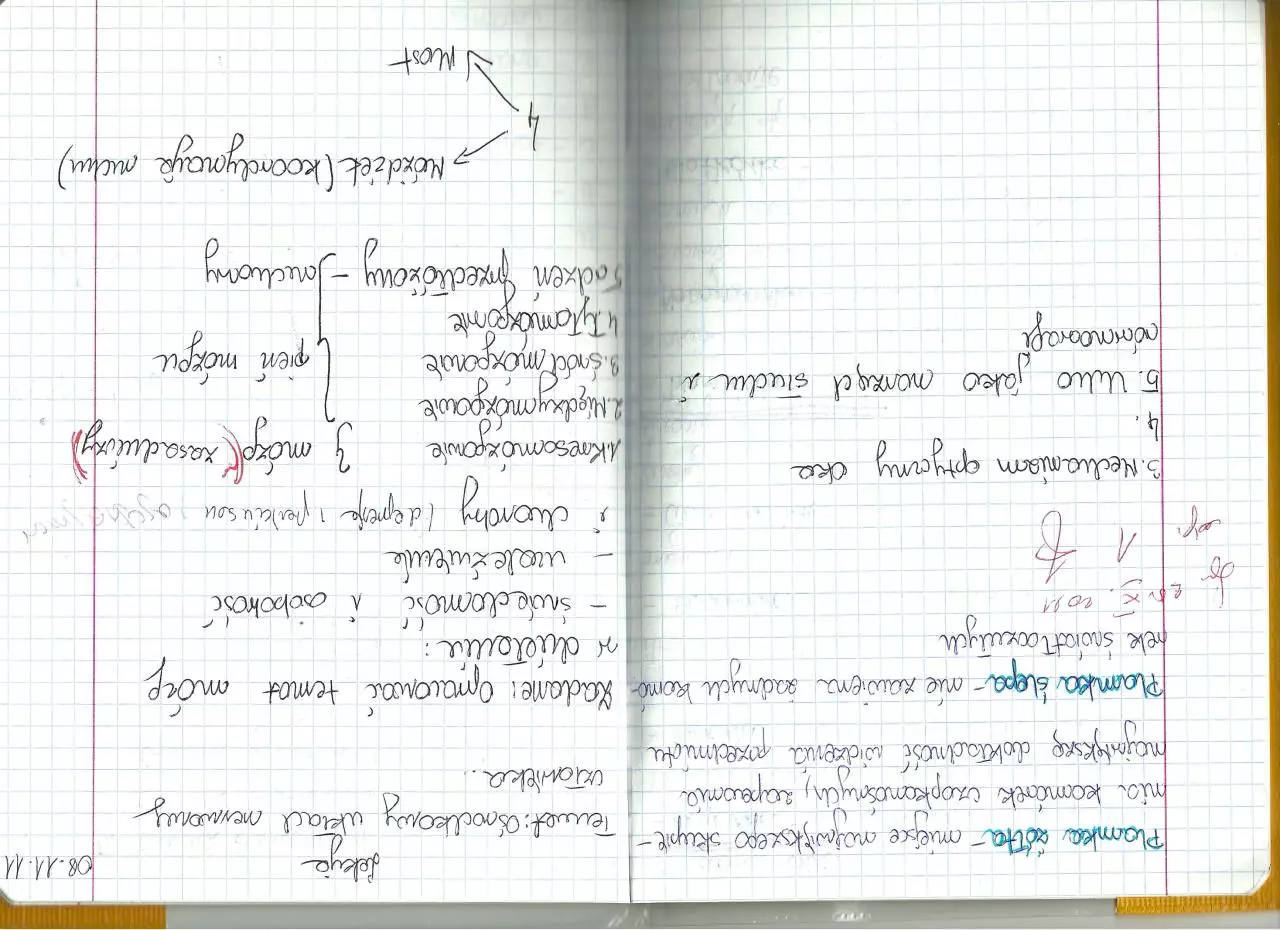 Plamka żółta - miejsce największego skupie-
nia komórek czopkonośnych, zapewnia
największą dokładność widzenia przedmiotu
Plamka ślepa - nie zawiera żadnych komó-
rek światłoczułych
XI. 2011
1
3. Mechanizm optyczny oka
4.
5. Ucho jako narząd słuchu i
równowagi
Lekcja 08.11.11
Temat: Ośrodkowy układ nerwowy
człowieka..
Zadane: Opracować temat mózg
w działaniu:
- świadomość i osobowość
- uzależnienie
i choroby (depresja, parkinson,
1. Kresomózgowie } mózg (zasadniczy)
2. Międzymózgowie
3. śródmózgowie } pień mózgu
4. Tyłomózgowie
5. rdzeń przedłużony - ruchowy
4
Móżdżek (koordynacja ruchu)
Most